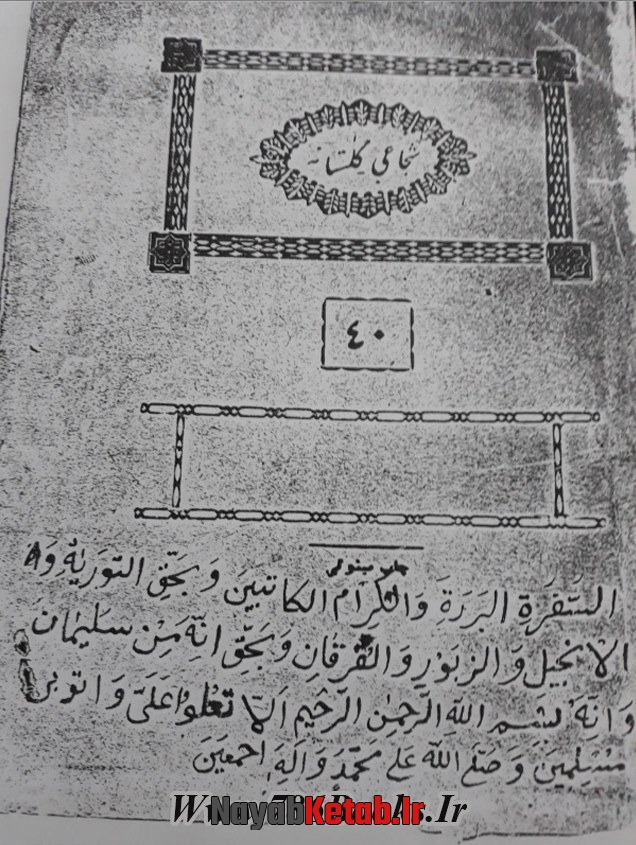 شجاعی گلستانه
٤٠
چاپ مینوئی
السَّفَرَةِ البَرَرَةِ وَالكِرَامِ الكَاتِبَينَ وَبِحَقِّ التَوريٰةِ وَ
الاِنجيلِ وَ الزَبوُرِ وَالفُرقانِ وَبِحَقِّ اِنَّهُ مِنْ سُلَيمٰانَ
وَ اِنَّهُ بِسْمِ اللهِ الرَّحمٰنِ الرَّحيمِ اَلاّ تَعلوُا عَلَىَّ وَ اتوُنى
مُسْلِمينَ وَ صَلَّى اللهُ عَلىٰ مُحَمَّدٍ وَ آلِهِ اَجمَعينَ
NayabKetab.Ir